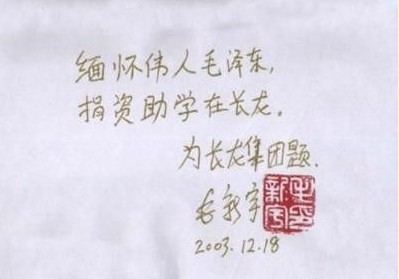 缅怀伟人毛泽东,
捐资助学在长龙。
为长龙集团题.
毛新宇
2003.12.18